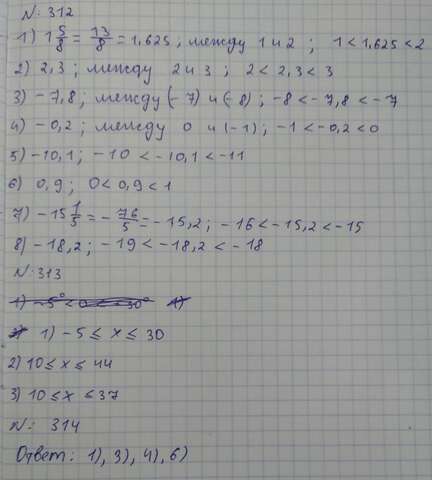 N: 312
1) 1 5/8 = 13/8 = 1,625 ; между 1 и 2 ; 1 < 1,625 < 2
2) 2,3 ; между 2 и 3 ; 2 < 2,3 < 3
3) -7,8 ; между (-7) и (-8) ; -8 < -7,8 < -7
4) -0,2 ; между 0 и (-1) ; -1 < -0,2 < 0
5) -10,1 ; -10 < -10,1 < -11
6) 0,9 ; 0 < 0,9 < 1
7) -15 1/5 = -76/5 = -15,2 ; -16 < -15,2 < -15
8) -18,2 ; -19 < -18,2 < -18
N: 313
1) -5 ≤ x ≤ 30
2) 10 ≤ x ≤ 44
3) 10 ≤ x ≤ 37
N: 314
Ответ: 1), 3), 4), 6)